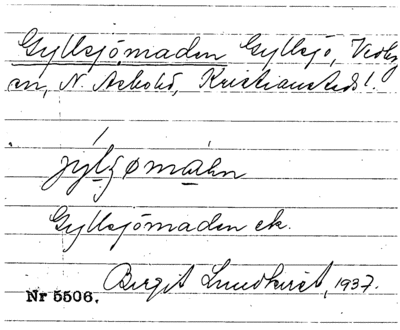 Gyllsjömaden Gyllsjö, Vedby
sn, N. Åsbobd, Kristianstads l.
jýlʃømàhn
Gyllsjömaden ek.
Birgit Lundkvist, 1937.
Nr 5506.